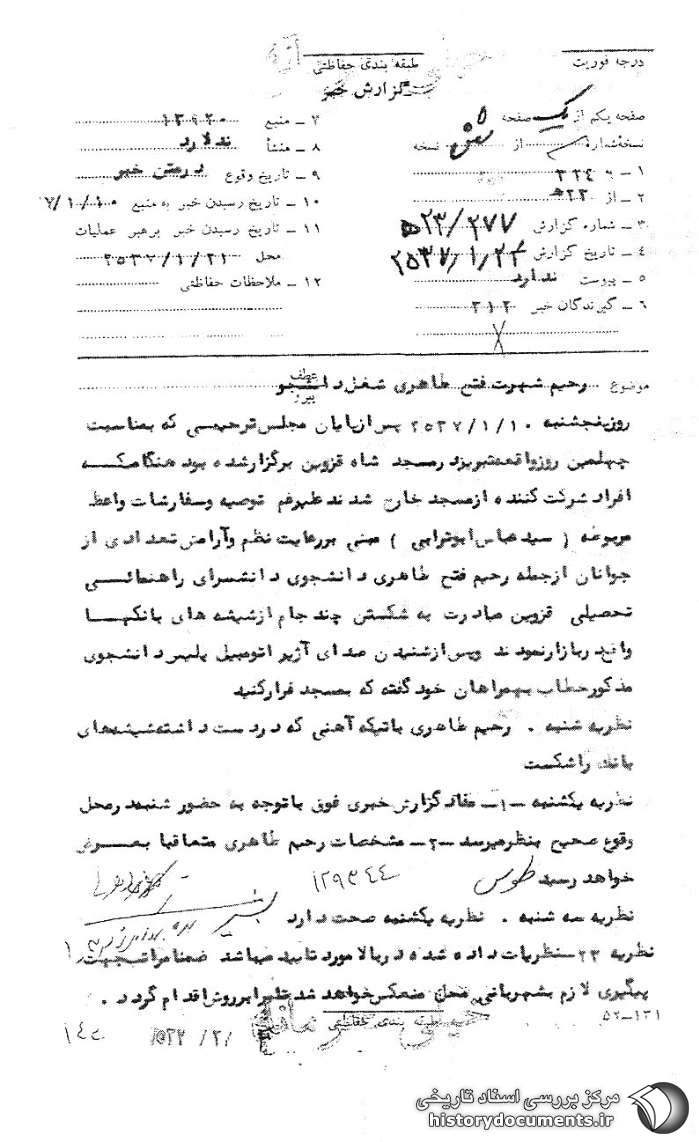 درجه فوریت
طبقه بندی حفاظتی
گزارش خبر
صفحه یکم از یک صفحه
نسخه شماره از نسخه
۱ -
۲ - از ۲۳ ه
۳ - شماره گزارش ۲۷۷/۲۳ ه
۴ - تاریخ گزارش ۲۵۳۷/۱/۲۲
۵ - پیوست ندارد
۶ - گیرندگان خبر ۳۱۲
۷ - منبع ۱۳۹۲۰
۸ - منشأ ندارد
۹ - تاریخ وقوع درمتن خبر
۱۰ - تاریخ رسیدن خبر به منبع ۷/۱/۱۰
۱۱ - تاریخ رسیدن خبر برهبر عملیات
محل ۲۵۳۷/۱/۲۱
۱۲ - ملاحظات حفاظتی
موضوع رحیم شهرت فتح طاهری شغل دانشجو
عطف
پیرو
روزپنجشنبه ۲۵۳۷/۱/۱۰ پس ازپایان مجلس ترحیمی که بمناسبت
چهلمین روزواقعه تبریزد رمسجد شاه قزوین برگزارشده بود هنگامیکه
افراد شرکت کننده ازمسجد خارج شدند علیرغم توصیه وسفارشات واعظ
مربوطه ( سیدعباس ابوترابی ) مبنی بررعایت نظم وآرامش تعدادی از
جوانان ازجمله رحیم فتح طاهری دانشجوی دانشسرای راهنمائی
تحصیلی قزوین مبادرت به شکستن چند جام ازشیشه های بانکهای
واقع دربازارنمودند وپس ازشنیدن صدای آژیر اتومبیل پلیس دانشجوی
مذکورخطاب بهمراهان خود گفته که بمسجد فرارکنید
نظریه شنبه . رحیم طاهری باتیکه آهنی که دردست داشته شیشه های
بانک راشکست
نظریه یکشنبه -۱- مفاد گزارش خبری فوق باتوجه به حضور شنبه درمحل
وقوع صحیح بنظرمیرسد -۲- مشخصات رحیم طاهری متعاقبا بعرض
خواهد رسید طوس ۱۲۹۳۴۴
نظریه سه شنبه . نظریه یکشنبه صحت دارد
نظریه ۲۳ه- نظریات داده شده دربالا مورد تایید میباشد ضمنا مراتب جهت
پیگیری لازم بشهربانی محل منعکس خواهد شد تابرابرروش اقدام گردد .
طبقه بندی حفاظتی
۵۲-۱۳۱
مرکز بررسی اسناد تاریخی
historydocuments.ir